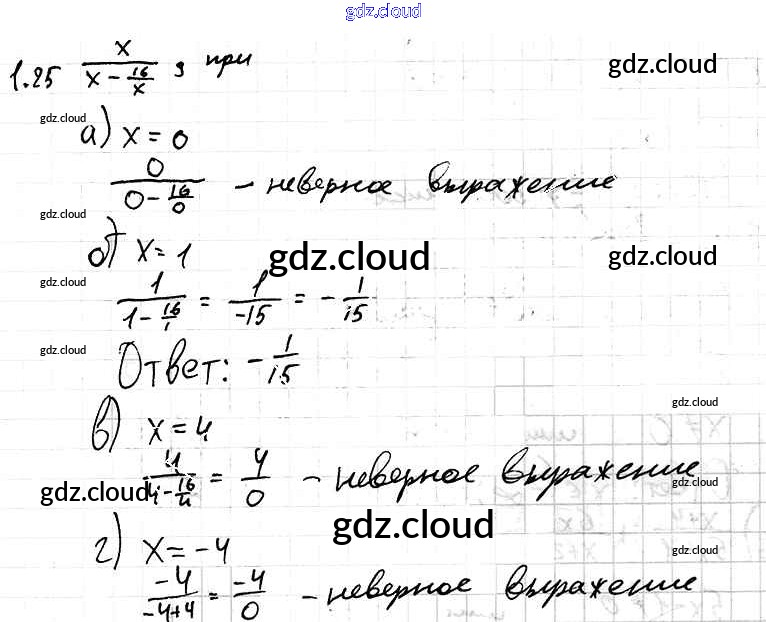 gdz.cloud
1.25 x/(x - 16/x), при
gdz.cloud
gdz.cloud
а) x = 0
0/(0 - 16/0) - неверное выражение
gdz.cloud
б) x = 1
gdz.cloud
gdz.cloud
gdz.cloud
1/(1 - 16/1) = 1/-15 = - 1/15
gdz.cloud
Ответ: - 1/15
gdz.cloud
в) x = 4
4/(4 - 16/4) = 4/0 - неверное выражение
gdz.cloud
gdz.cloud
gdz.cloud
г) x = -4
gdz.cloud
-4/(-4+4) = -4/0 - неверное выражение